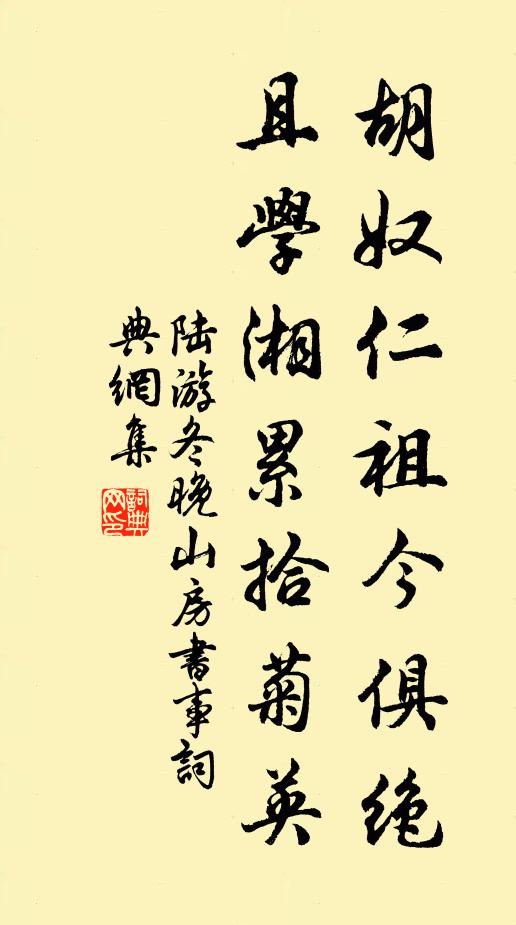 胡奴仁祖今俱绝
且學湘累拾菊英
陆游冬晚山房書事詞
典網集
詞典网印